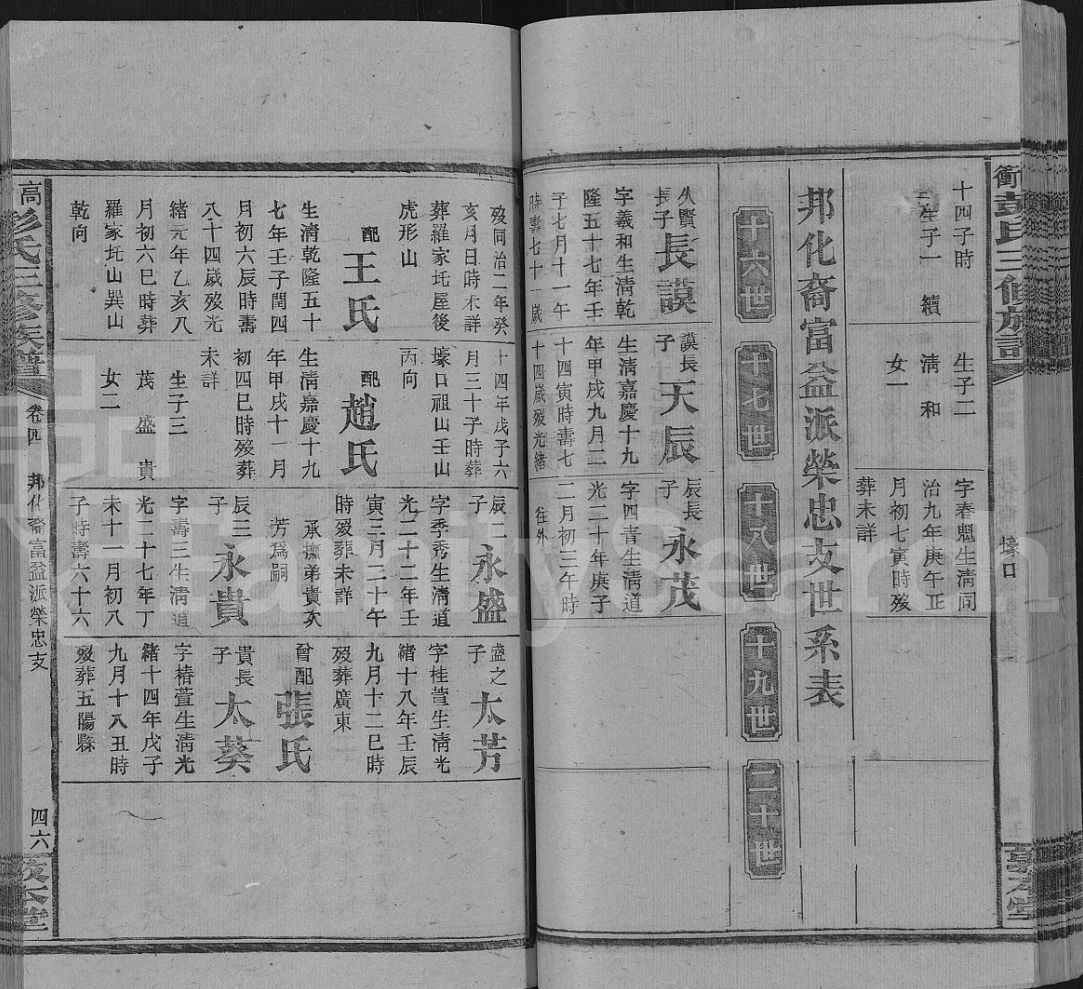 衡
彭氏三修族譜
壕口
敦本堂
十四子時
生子一 續
生子二
清 和
女一
字春魁生清同
治九年庚午正
月初七寅時歿
葬未詳
邦化裔富益派榮忠支世系表
十六世
十七世
十八世
十九世
二十世
久賢長子 長謨
字義和生清乾
隆五十七年壬
子七月十一午
時壽七十一歲
謨長子 天辰
生清嘉慶十九
年甲戌九月二
十四寅時壽七
十四歲歿光緒
辰長子 永茂
字四青生清道
光二十年庚子
二月初三午時
往外
歿同治二年癸
亥月日時未詳
葬羅家坵屋後
虎形山
配 王氏
生清乾隆五十
七年壬子閏四
月初六辰時壽
八十四歲歿光
緒元年乙亥八
月初六巳時葬
羅家坵山巽山
乾向
十四年戊子六
月三十子時葬
壕口祖山壬山
丙向
配 趙氏
生清嘉慶十九
年甲戌十一月
初四巳時歿葬
未詳
生子三
茂 盛 貴
女二
辰二子 永盛
字季秀生清道
光二十二年壬
寅三月二十午
時歿葬未詳
承撫弟貴次
芳爲嗣
辰三子 永貴
字壽三生清道
光二十七年丁
未十一月初八
子時壽六十六
盛之子 太芳
字桂萱生清光
緒十八年壬辰
九月十二巳時
歿葬廣東
曾配 張氏
貴長子 太葵
字椿萱生清光
緒十四年戊子
九月十八丑時
歿葬五陽縣
高
彭氏三修族譜
卷四
邦化裔富益派榮忠支
四六
敦本堂
FamilySearch